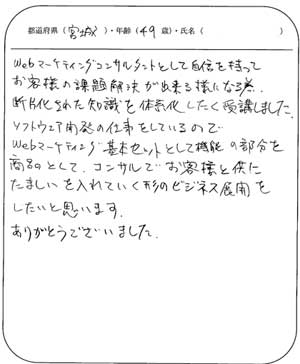 都道府県（宮城）・年齢（49歳）・氏名（　　　）
Webマーケティングコンサルタントとして自信を持って
お客様の課題解決が出来る様になる為、
断片化された知識を体系化したく受講しました。
ソフトウェア開発の仕事をしているので
Webマーケティング基本セットとして機能の部分を
商品として、コンサルでお客様と供に
たましいを入れていく形のビジネス展開を
したいと思います。
ありがとうございました。